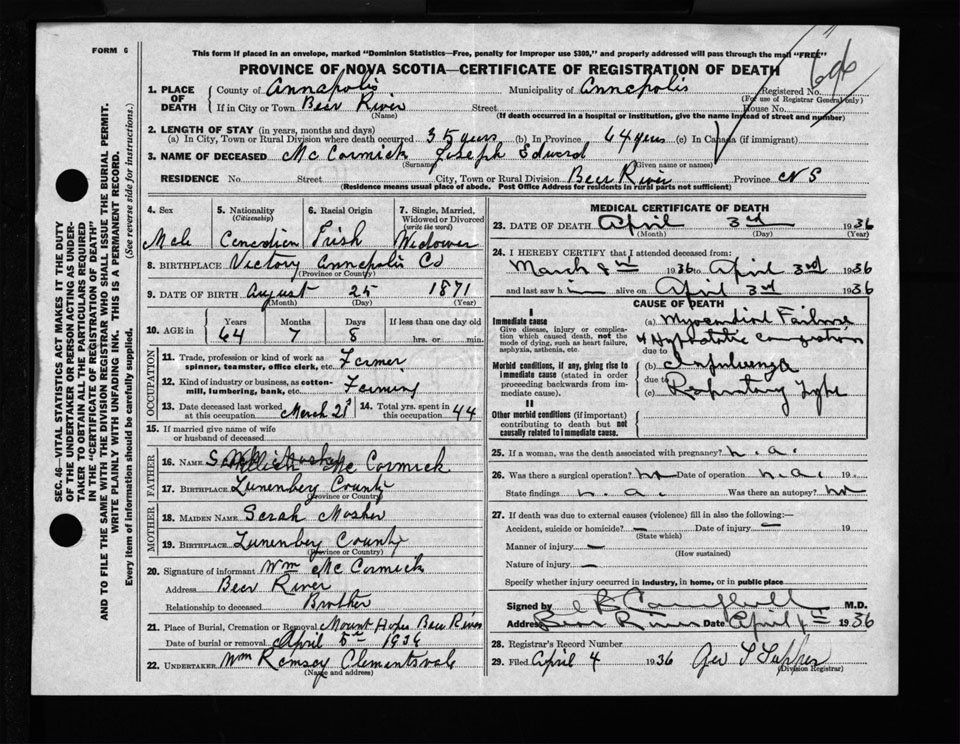 FORM 6
This form if placed in an envelope, marked "Dominion Statistics—Free, penalty for improper use $300," and properly addressed will pass through the mail "FREE"
PROVINCE OF NOVA SCOTIA—CERTIFICATE OF REGISTRATION OF DEATH
SEC. 46—VITAL STATISTICS ACT MAKES IT THE DUTY OF THE UNDERTAKER OR PERSON ACTING AS UNDERTAKER TO OBTAIN ALL THE PARTICULARS REQUIRED IN THE "CERTIFICATE OF REGISTRATION OF DEATH" AND TO FILE THE SAME WITH THE DIVISION REGISTRAR WHO SHALL ISSUE THE BURIAL PERMIT.
WRITE PLAINLY WITH UNFADING INK. THIS IS A PERMANENT RECORD.
Every item of information should be carefully supplied. (See reverse side for instructions.)
1. PLACE OF DEATH
County of Annapolis Municipality of Annapolis Registered No.
(For use of Registrar General only)
If in City or Town Bear River Street House No.
(Name) (If death occurred in a hospital or institution, give the name instead of street and number)
2. LENGTH OF STAY (in years, months and days)
(a) In City, Town or Rural Division where death occurred 35 years (b) In Province 64 years (c) In Canada (if immigrant)
3. NAME OF DECEASED McCormick Joseph Edward
(Surname) (Given name or names)
RESIDENCE No. Street City, Town or Rural Division Bear River Province NS
(Residence means usual place of abode. Post Office Address for residents in rural parts not sufficient)
4. Sex 5. Nationality (Citizenship) 6. Racial Origin 7. Single, Married, Widowed or Divorced (write the word)
Male Canadian Irish Widower
8. BIRTHPLACE Victory Annapolis Co
(Province or County)
9. DATE OF BIRTH August 25 1871
(Month) (Day) (Year)
10. AGE in Years Months Days If less than one day old
64 7 8 hrs. or min.
OCCUPATION
11. Trade, profession or kind of work as spinner, teamster, office clerk, etc. Farmer
12. Kind of industry or business, as cotton-mill, lumbering, bank, etc. Farming
13. Date deceased last worked at this occupation March 21st 14. Total yrs. spent in this occupation 44
15. If married give name of wife or husband of deceased
FATHER
16. Name McCormick
17. Birthplace Lunenberg County
(Province or County)
MOTHER
18. Maiden Name Sarah Mosher
19. Birthplace Lunenberg County
(Province or County)
20. Signature of informant Wm McCormick
Address Bear River
Relationship to deceased Brother
21. Place of Burial, Cremation or Removal Mount Hope Bear River
Date of burial or removal April 5th 1936
22. UNDERTAKER Wm Ramsey Clementsvale
(Name and address)
MEDICAL CERTIFICATE OF DEATH
23. DATE OF DEATH April 3rd 1936
(Month) (Day) (Year)
24. I HEREBY CERTIFY that I attended deceased from:
March 1936 to April 3rd 1936
and last saw h im alive on April 3rd 1936
CAUSE OF DEATH
I
Immediate cause
Give disease, injury or complication which caused death, not the mode of dying, such as heart failure, asphyxia, asthenia, etc.
(a) Myocardial Failure
& Hypostatic Congestion
due to
Morbid conditions, if any, giving rise to immediate cause (stated in order proceeding backwards from immediate cause).
(b) Influenza
due to
(c) Respiratory Type
II
Other morbid conditions (if important) contributing to death but not causally related to immediate cause.
25. If a woman, was the death associated with pregnancy? n.a.
26. Was there a surgical operation? no Date of operation n.a. 19
State findings n.a. Was there an autopsy? no
27. If death was due to external causes (violence) fill in also the following:—
Accident, suicide or homicide? — Date of injury — 19
(State which)
Manner of injury —
(How sustained)
Nature of injury —
Specify whether injury occurred in industry, in home, or in public place
Signed by Campbell M.D.
Address Bear River Date April 4th 1936
28. Registrar's Record Number
29. Filed April 4 1936 Geo
(Division Registrar)